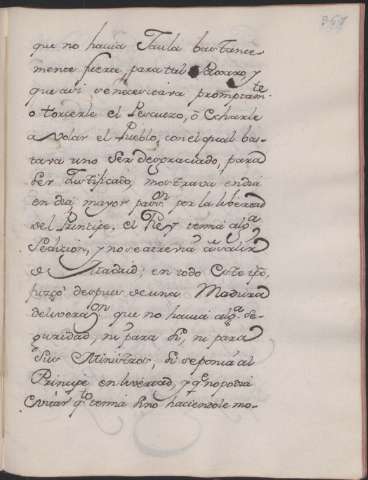 357
que no havia Jaula bastante-
mente fuerte, para tal Pajaro, y
que assi se necesitava promptam.te
o torcerle el Pescuezo, ô Echarle
a volar el Pueblo, con el qual bas-
tava uno ser desgraciado, para
ser Justificado, mostrava en dia
en dia, mayor pasion por la libertad
del Principe, el Rey temia alg.a
Sedicion, y no se atrevia â salir
de Madrid; en todo Este tpo,
juzgò despues de una Madura
deliveraz.on que no havia alg.a se-
guridad, ni para si, ni para
sus Ministros, si se ponia al
Principe en livertad, y q.e no podia
Evitar q.to temia sino haciendole mo-